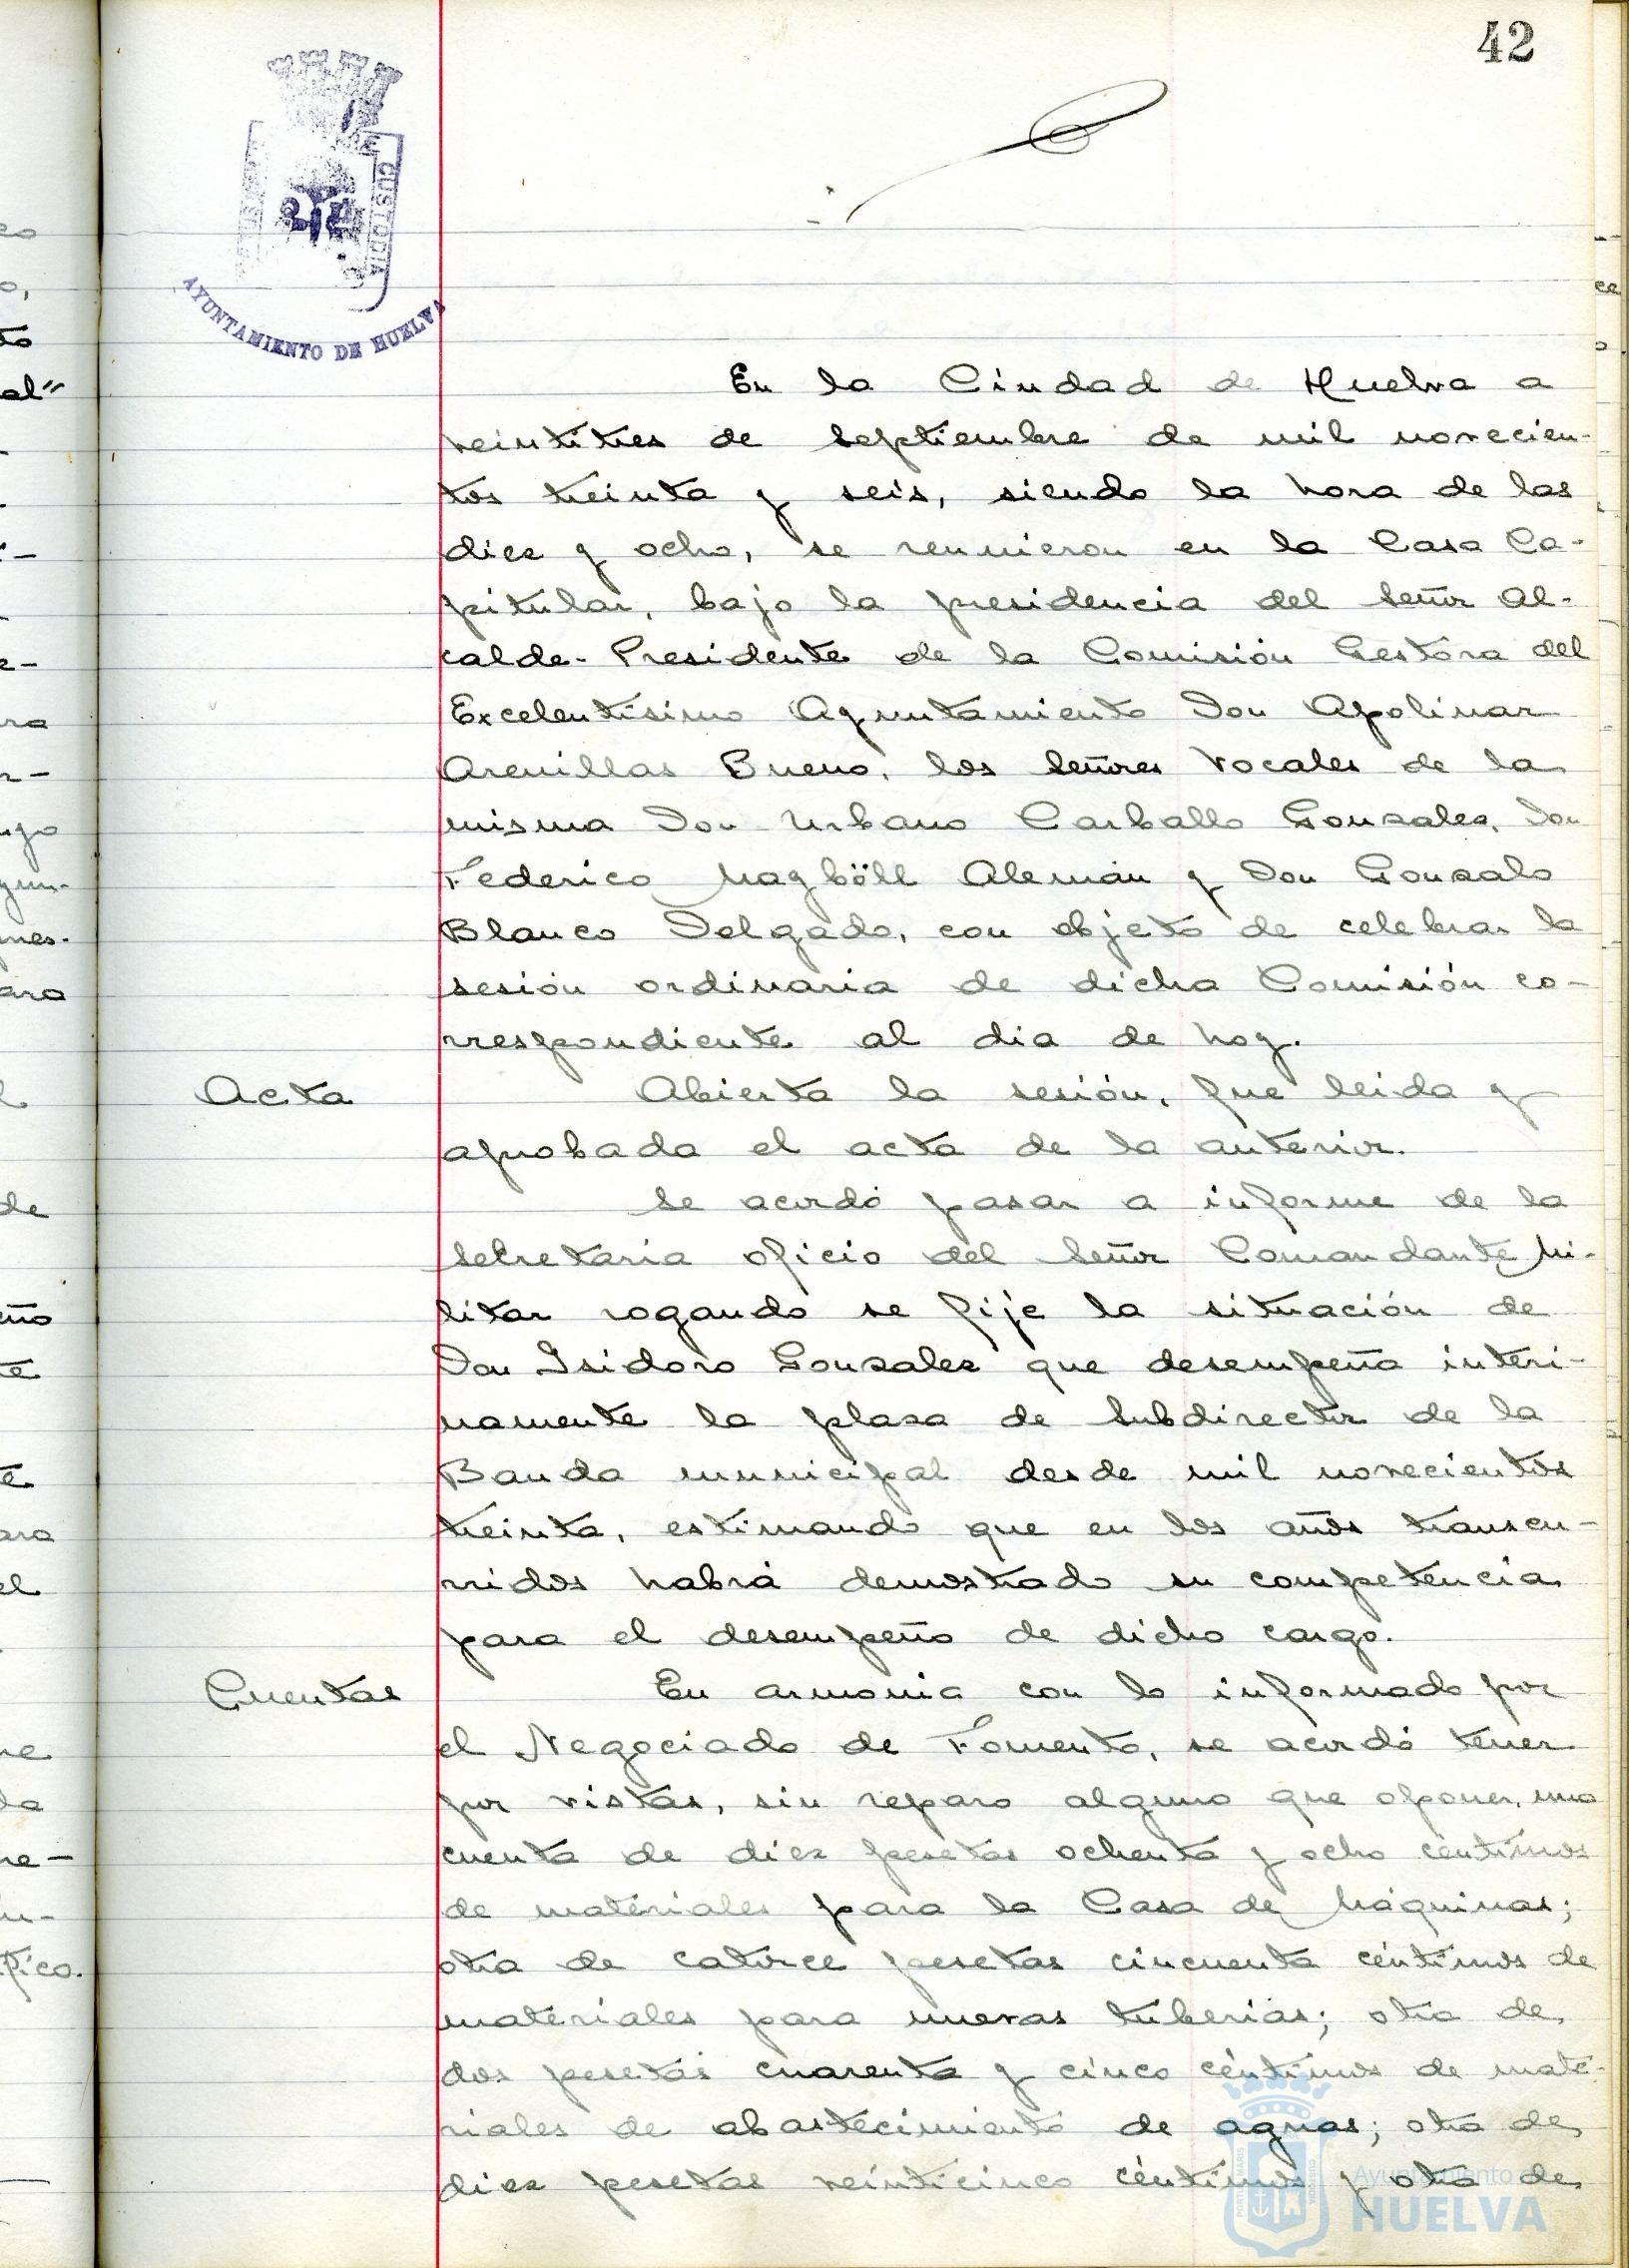 42
CUSTODIA
AYUNTAMIENTO DE HUELVA
En la Ciudad de Huelva a
veintitres de septiembre de mil novecien-
tos treinta y seis, siendo la hora de las
diez y ocho, se reunieron en la Casa Ca-
pitular, bajo la presidencia del Señor Al-
calde-Presidente de la Comisión Gestora del
Excelentísimo Ayuntamiento Don Apolinar
Arenillas Bueno, los Señores Vocales de la
misma Don Urbano Carballo Gonzalez, Don
Federico Magböll Alemán y Don Gonzalo
Blanco Delgado, con objeto de celebrar la
sesión ordinaria de dicha Comisión co-
rrespondiente al dia de hoy.
Acta Abierta la sesión, fue leida y
aprobada el acta de la anterior.
Se acordó pasar a informe de la
Secretaria oficio del Señor Comandante Mi-
litar rogando se fije la situación de
Don Isidoro Gonzalez que desempeña interi-
namente la plaza de Subdirector de la
Banda municipal desde mil novecientos
treinta, estimando que en los años transcu-
rridos habrá demostrado su competencia
para el desempeño de dicho cargo.
Cuentas En armonia con lo informado por
el Negociado de Fomento, se acordó tener
por vistas, sin reparo alguno que oponer, una
cuenta de diez pesetas ochenta y ocho céntimos
de materiales para la Casa de Máquinas;
otra de catorce pesetas cincuenta céntimos de
materiales para nuevas tuberias; otra de
dos pesetas cuarenta y cinco céntimos de mate-
riales de abastecimiento de aguas; otra de
diez pesetas veinticinco céntimos y otra de
Ayuntamiento de
HUELVA